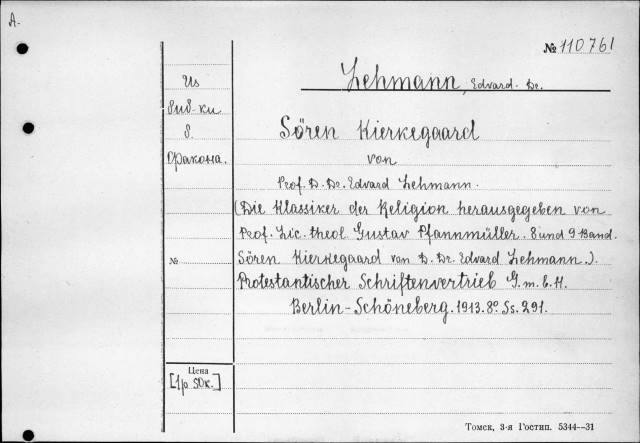 A.
№ 110761
Lehmann, Edvard. Dr.
Из
биб-ки
б.
Фракона.
Sören Kierkegaard
von
Prof. D. Dr. Edvard Lehmann.
(Die Klassiker der Religion herausgegeben von
Prof. Lic. theol Gustav Pfannmüller. 8 und 9 Band.
№
Sören Kierkegaard von D. Dr. Edvard Lehmann.).
Protestantischer Schriftenvertrieb G.m.b.H.
Berlin-Schöneberg. 1913. 8º. Ss. 291.
Цена
[1р. 50к.]
Томск, 3-я Гостип. 5344—31